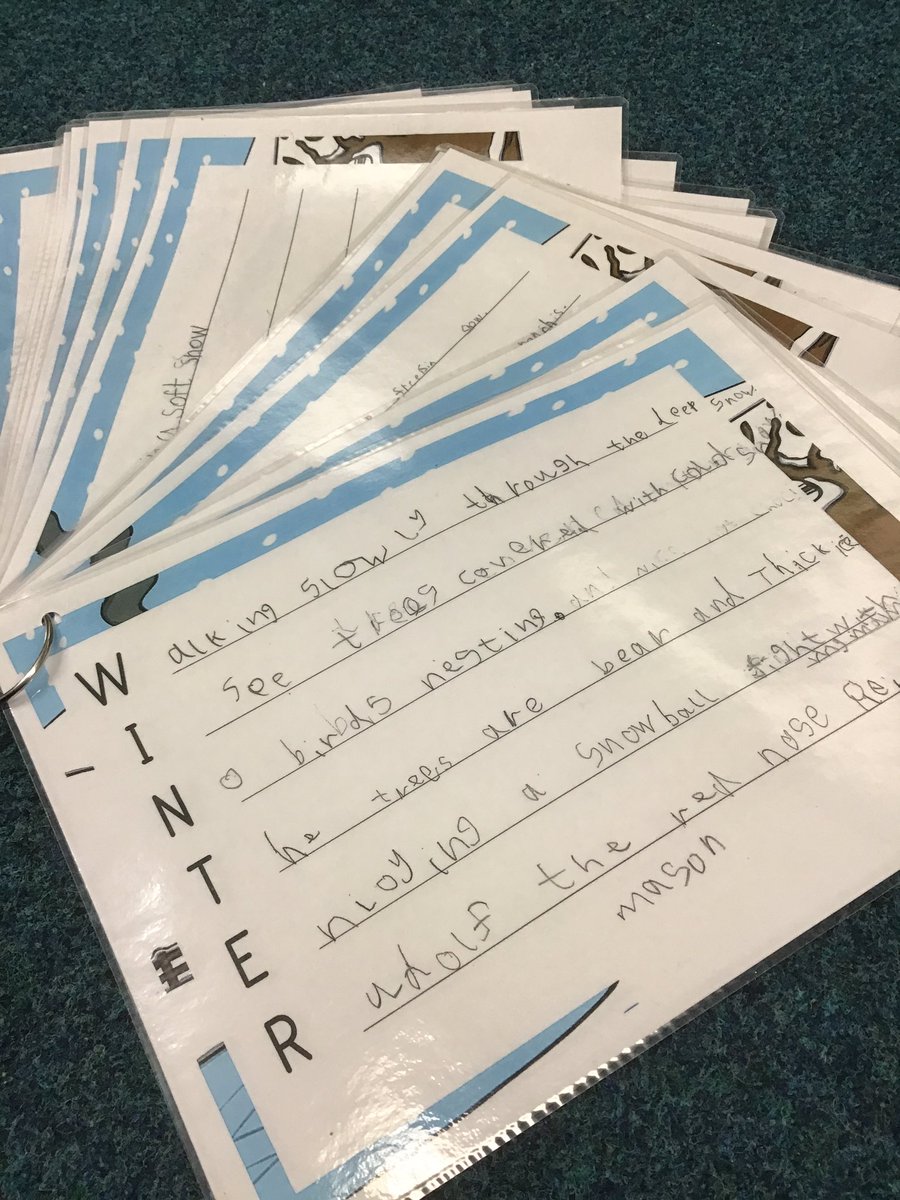 soft snow
Walking slowly through the deep snow.
I see trees covered with
No birds nesting.
The trees are bear and Thick ice
Enjoying a snowball fight with
my
Rudolf the red nose Rei
mason